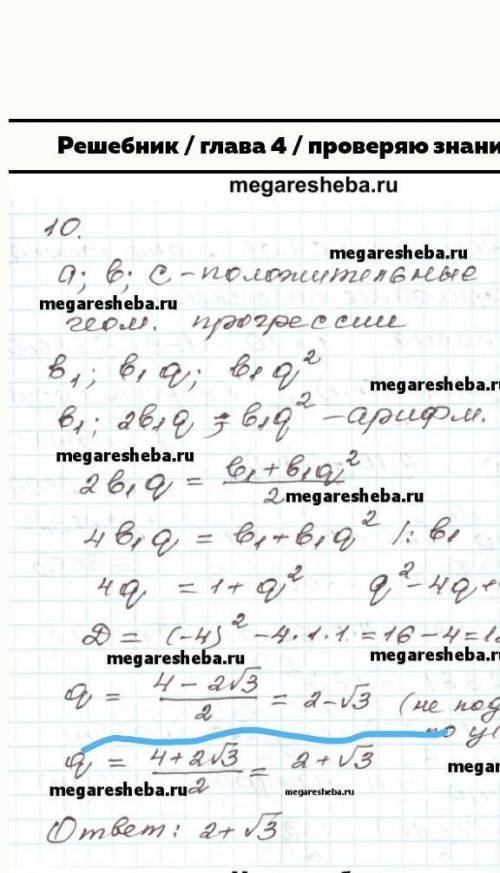 Решебник / глава 4 / проверяю знани
megaresheba.ru
10.
megaresheba.ru
а; в; с - положительные
megaresheba.ru
геом. прогрессии
в₁; в₁q; в₁q²
megaresheba.ru
в₁; 2в₁q; в₁q² - арифм.
megaresheba.ru
2в₁q = (в₁ + в₁q²)/2
megaresheba.ru
4в₁q = в₁ + в₁q² /: в₁
4q = 1 + q² q² - 4q +
Д = (-4)² - 4·1·1 = 16 - 4 = 1
megaresheba.ru
megaresheba.ru
q = (4 - 2√3)/2 = 2 - √3 (не под
по ус
q = (4 + 2√3)/2 = 2 + √3
mega
megaresheba.ru
megaresheba.ru
Ответ: 2 + √3